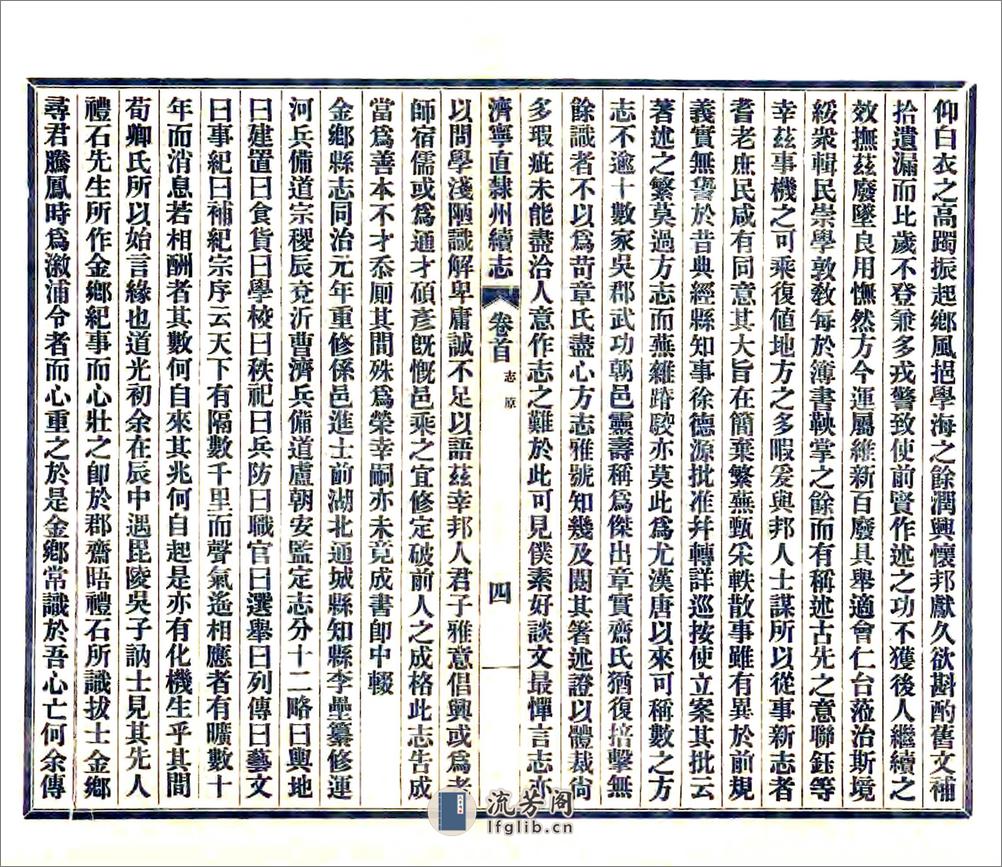 仰白衣之高躅振起鄉風挹學海之餘潤興懷邦獻久欲斟酌舊文補
拾遺漏而比歲不登兼多戎警致使前賢作述之功不獲後人繼續之
效撫茲廢墜良用憮然方今運屬維新百廢具舉適會仁台蒞治斯境
綏衆輯民崇學敦教每於簿書鞅掌之餘而有稱述古先之意聯鈺等
幸茲事機之可乘復値地方之多暇爰與邦人士謀所以從事新志者
耆老庶民咸有同意其大旨在簡棄繁蕪甄采軼散事雖有異於前規
義實無諐於昔典經縣知事徐德源批准幷轉詳巡按使立案其批云
著述之繁莫過方志而蕪雜踳駮亦莫此爲尤漢唐以來可稱數之方
志不逾十數家吳郡武功朝邑靈壽稱爲傑出章實齋氏猶復掊擊無
餘識者不以爲苛章氏盡心方志雅號知幾及閱其箸述證以體裁尙
多瑕疵未能盡洽人意作志之難於此可見僕素好談文最憚言志亦
濟寧直隷州續志 卷首 志原 四
以問學淺陋識解卑庸誠不足以語茲幸邦人君子雅意倡興或爲老
師宿儒或爲通才碩彥旣慨邑乘之宜修定破前人之成格此志告成
當爲善本不才忝厠其間殊爲榮幸嗣亦未竟成書卽中輟
金鄉縣志同治元年重修係邑進士前湖北通城縣知縣李壘纂修運
河兵備道宗稷辰兗沂曹濟兵備道盧朝安監定志分十二略曰輿地
曰建置曰食貨曰學校曰秩祀曰兵防曰職官曰選舉曰列傳曰藝文
曰事紀曰補紀宗序云天下有隔數千里而聲氣遙相應者有曠數十
年而消息若相酬者其數何自來其兆何自起是亦有化機生乎其間
荀卿氏所以始言緣也道光初余在辰中遇毘陵吳子訥士見其先人
禮石先生所作金鄉紀事而心壯之卽於郡齋晤禮石所識拔士金鄉
尋君騰鳳時爲漵浦令者而心重之於是金鄉常識於吾心亡何余傳
流芳閣
lfglib.cn